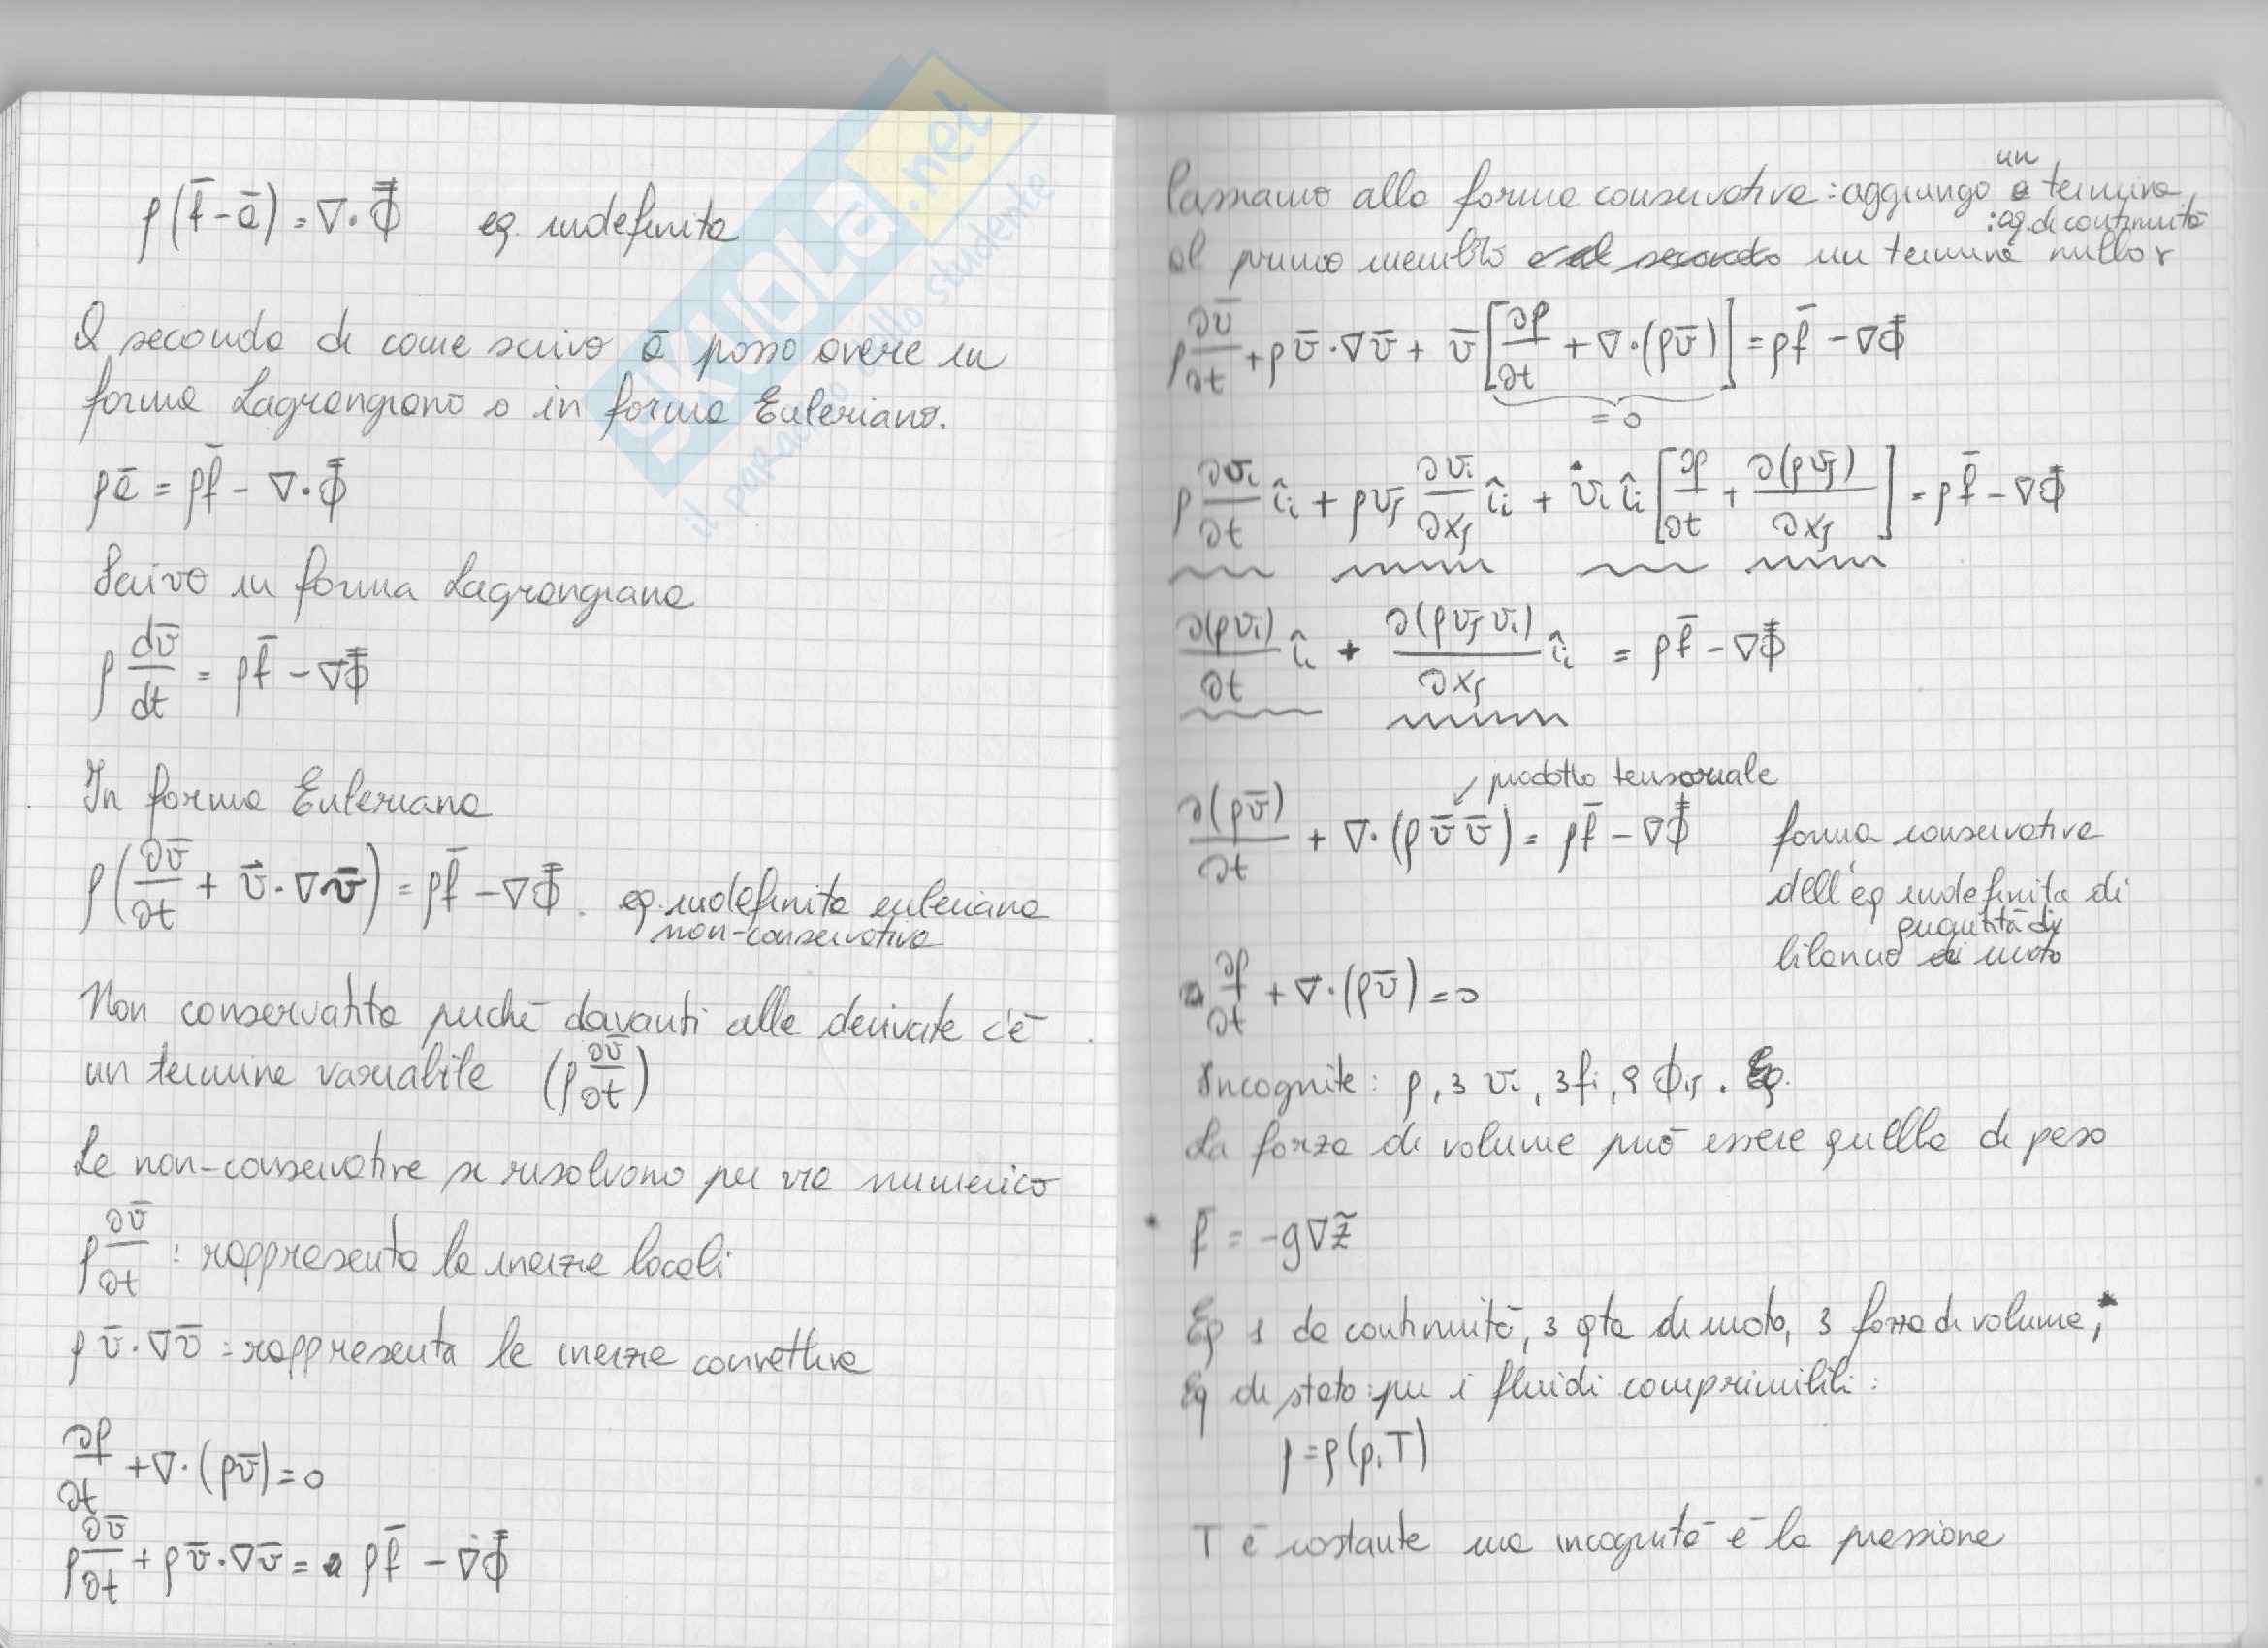 ρ(f̄-ā) = ∇·Φ̿ eq. indefinita
A seconda di come scrivo ā posso avere in
forma Lagrangiana o in forma Euleriana.
ρā = ρf̄ - ∇·Φ̿
Scrivo in forma Lagrangiana
ρ dv̄/dt = ρf̄ - ∇Φ̿
In forma Euleriana
ρ(∂v̄/∂t + v̄·∇v̄) = ρf̄ - ∇Φ̿. eq. indefinita euleriana
non-conservativa
Non conservativa perché davanti alle derivate c'è
un termine variabile (ρ ∂v̄/∂t)
Le non-conservative si risolvono per via numerica
ρ ∂v̄/∂t : rappresenta le inerzie locali
ρ v̄·∇v̄ : rappresenta le inerzie convettive
∂ρ/∂t + ∇·(ρv̄) = 0
ρ ∂v̄/∂t + ρv̄·∇v̄ = ρf̄ - ∇Φ̿
Passiamo alla forma conservativa: aggiungo un termine
: eq. di continuità
al primo membro e al secondo un termine nullo
ρ ∂v̄/∂t + ρv̄·∇v̄ + v̄[∂ρ/∂t + ∇·(ρv̄)] = ρf̄ - ∇Φ̿
= 0
ρ ∂vᵢ/∂t îᵢ + ρvⱼ ∂vᵢ/∂xⱼ îᵢ + vᵢ îᵢ [∂ρ/∂t + ∂(ρvⱼ)/∂xⱼ] = ρf̄ - ∇Φ̿
∂(ρvᵢ)/∂t îᵢ + ∂(ρvⱼvᵢ)/∂xⱼ îᵢ = ρf̄ - ∇Φ̿
↙ prodotto tensoriale
∂(ρv̄)/∂t + ∇·(ρv̄v̄) = ρf̄ - ∇Φ̿ forma conservativa
dell'eq indefinita di
quantità di
bilancio di moto
∂ρ/∂t + ∇·(ρv̄) = 0
Incognite: ρ, 3 vᵢ, 3 fᵢ, 9 Φᵢⱼ. Eq.
La forza di volume può essere quella di peso
* f̄ = -g∇z̃
Eq 1 da continuità, 3 qta di moto, 3 forza di volume,*
Eq di stato: per i fluidi comprimibili:
ρ = ρ(p,T)
T è costante ma incognita è la pressione
SKUOLA.net
il paradiso dello studente